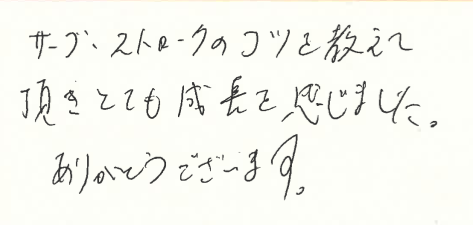 サーブ・ストロークのコツを教えて
頂きとても成長を感じました。
ありがとうございます。